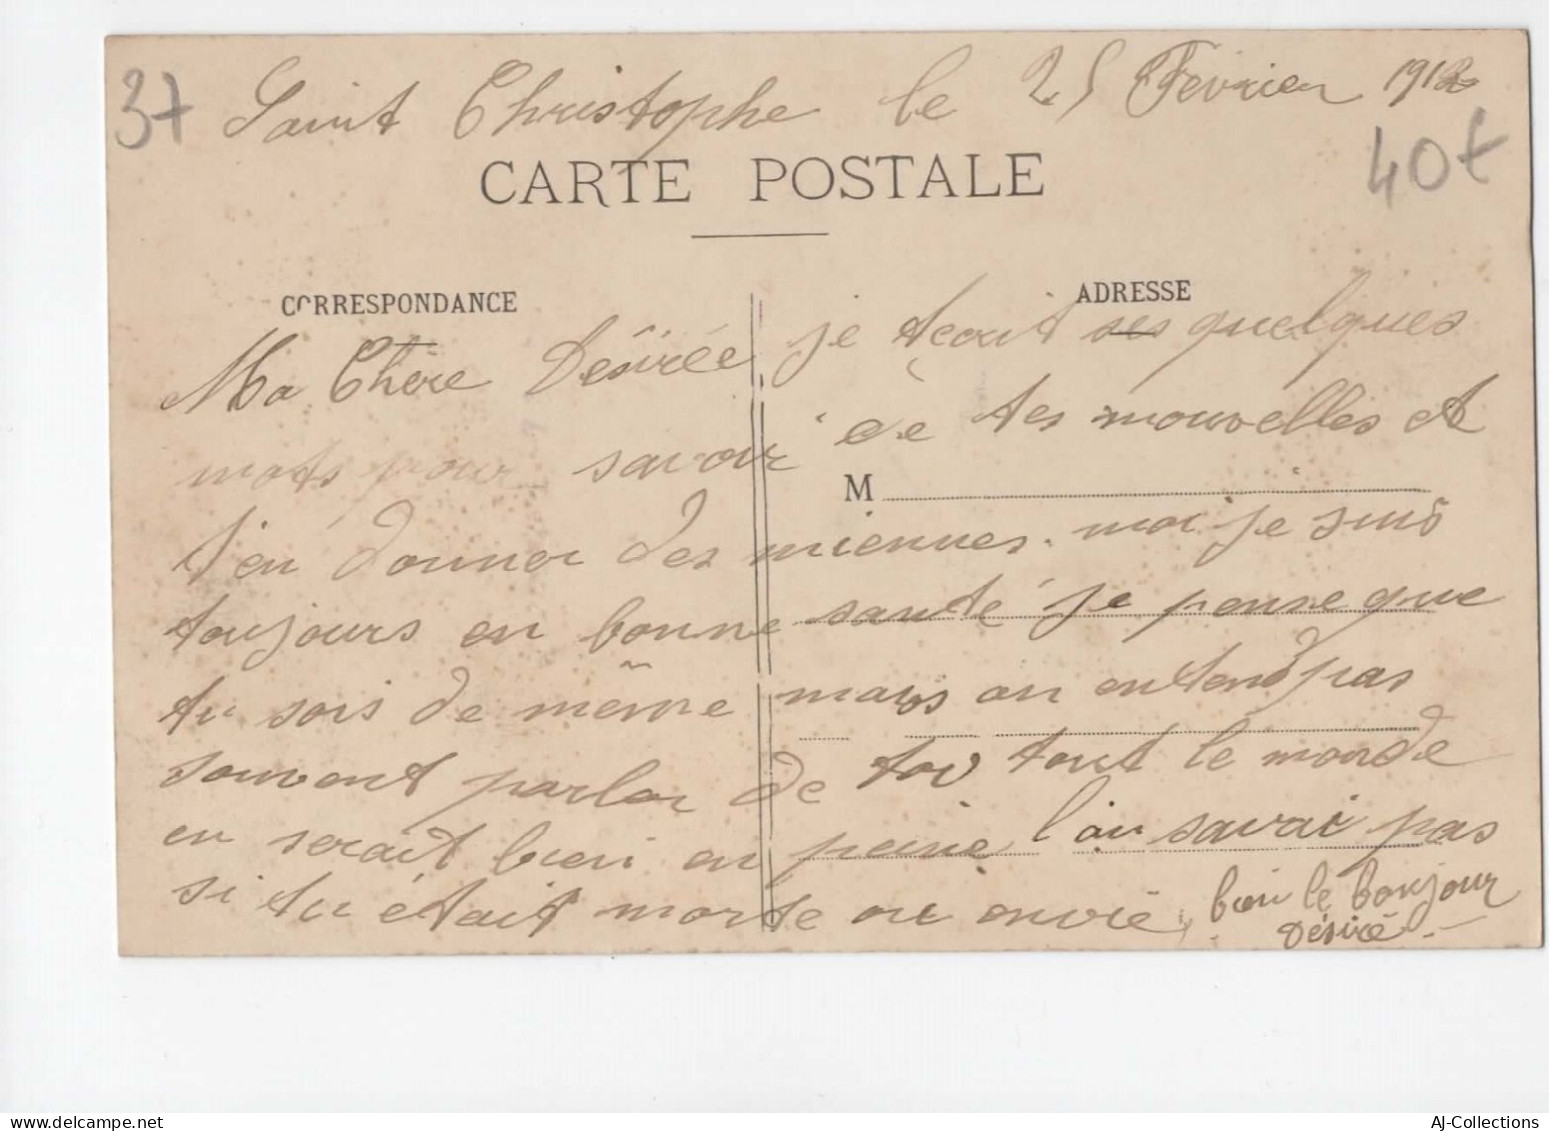 37 Saint Christophe le 25 Fevrier 1912
40€
CARTE POSTALE
CORRESPONDANCE
ADRESSE
Ma Chère Désirée je tecrit ses quelques
mots pour savoir de tes nouvelles et
t'en donner des miennes. moi je suis
M
toujours en bonne santé je pense que
tu sois de même mais on entend pas
souvent parler de toi tout le monde
en serait bien en peine l'on savai pas
si tu était morte ou envie, bien le bonjour
Désiré.
AJ-Collections